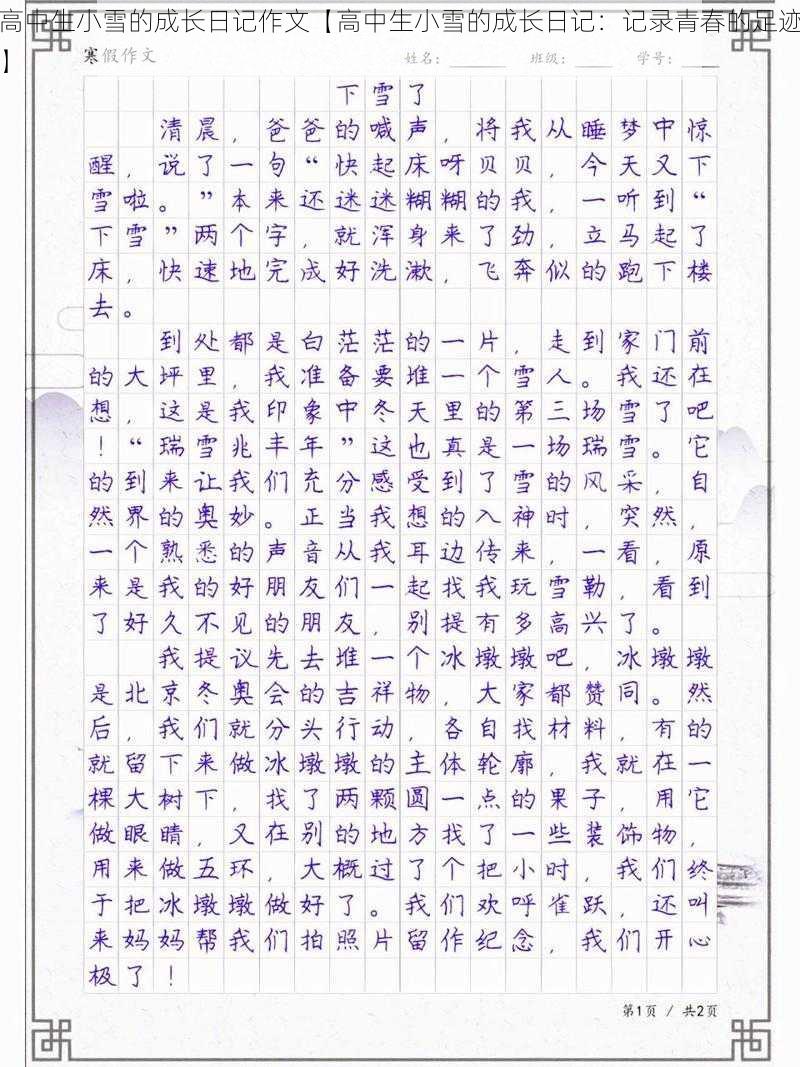 高中生小雪的成长日记作文【高中生小雪的成长日记：记录青春的足迹
】
寒假作文 姓名： 班级： 学号：
下雪了
清晨，爸爸的喊声，将我从睡梦中惊
醒，说了一句“快起床呀贝贝，今天又下
雪啦。”本来还迷迷糊糊的我，一听到“
下雪”两个字，就浑身来了劲，立马起了
床，快速地完成好洗漱，飞奔似的跑下楼
去。
到处都是白茫茫的一片，走到家门前
的大坪里，我准备要堆一个雪人。我还在
想，这是我印象中冬天里的第三场雪了吧
！“瑞雪兆丰年”这也真是一场瑞雪。它
的到来让我们充分感受到了雪的风采，自
然界的奥妙。正当我想的入神时，突然，
一个熟悉的声音从我耳边传来，一看，原
来是我的好朋友们一起找我玩雪勒，看到
了好久不见的朋友，别提有多高兴了。
我提议先去堆一个冰墩墩吧，冰墩墩
是北京冬奥会的吉祥物，大家都赞同。然
后，我们就分头行动，各自找材料，有的
就留下来做冰墩墩的主体轮廓，我就在一
棵大树下，找了两颗圆一点的果子，用它
做眼睛，又在别的地方找了一些装饰物，
用来做五环，大概过了个把小时，我们终
于把冰墩墩做好了。我们欢呼雀跃，还叫
来妈妈帮我们拍照片留作纪念，我们开心
极了！
第1页 / 共2页